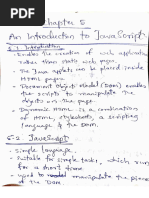 Chapter 5
An Introduction to JavaScript
Introduction
- Enables the creation of web applications
rather than static web pages.
- The Java applets can be placed inside
HTML pages.
- Document Object Model (DOM) enables
the scripts to manipulate the
objects on the page.
- Dynamic HTML is a combination
of HTML, stylesheets, a scripting
language & the DOM.
JavaScript
- Simple language.
- Suitable for simple tasks, which run
for a short period
- used to manipulate the pieces
of the DOM.